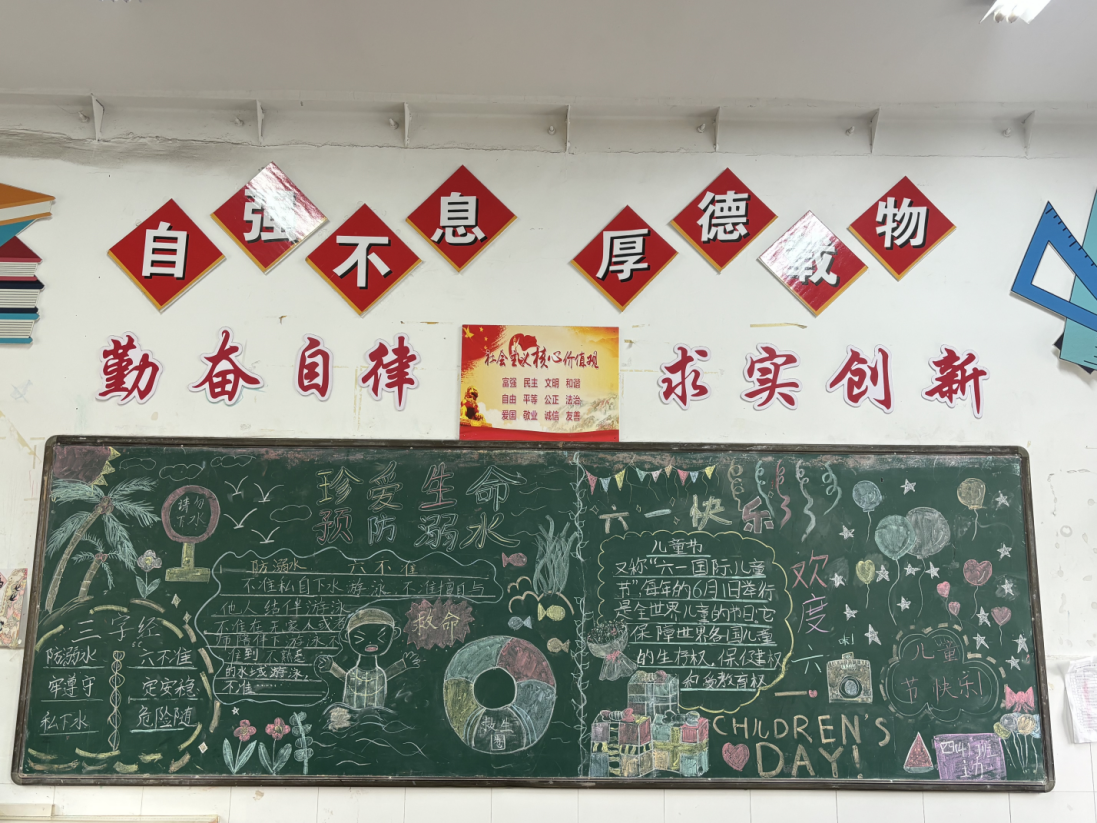 自强不息 厚德载物
勤奋自律
求实创新
社会主义核心价值观
富强 民主 文明 和谐
自由 平等 公正 法治
爱国 敬业 诚信 友善
珍爱生命
预防溺水
请勿
下水
防溺水 六不准
不准私自下水游泳 不准擅自与
他人结伴游泳
不准在无家人或
师陪伴下游泳 不
准到不熟悉
的水域游泳
不准……
救命
救生
圈
三字经
防溺水 “六不准
牢遵守 定安稳
私下水 危险随
六一快乐
儿童节
又称“六一国际儿童
节”,每年的6月1日举行
是全世界儿童的节日,它
保障世界各国儿童
的生存权、保健权
和受教育权
欢度六一
儿童
节快乐!
CHILDREN'S
DAY!